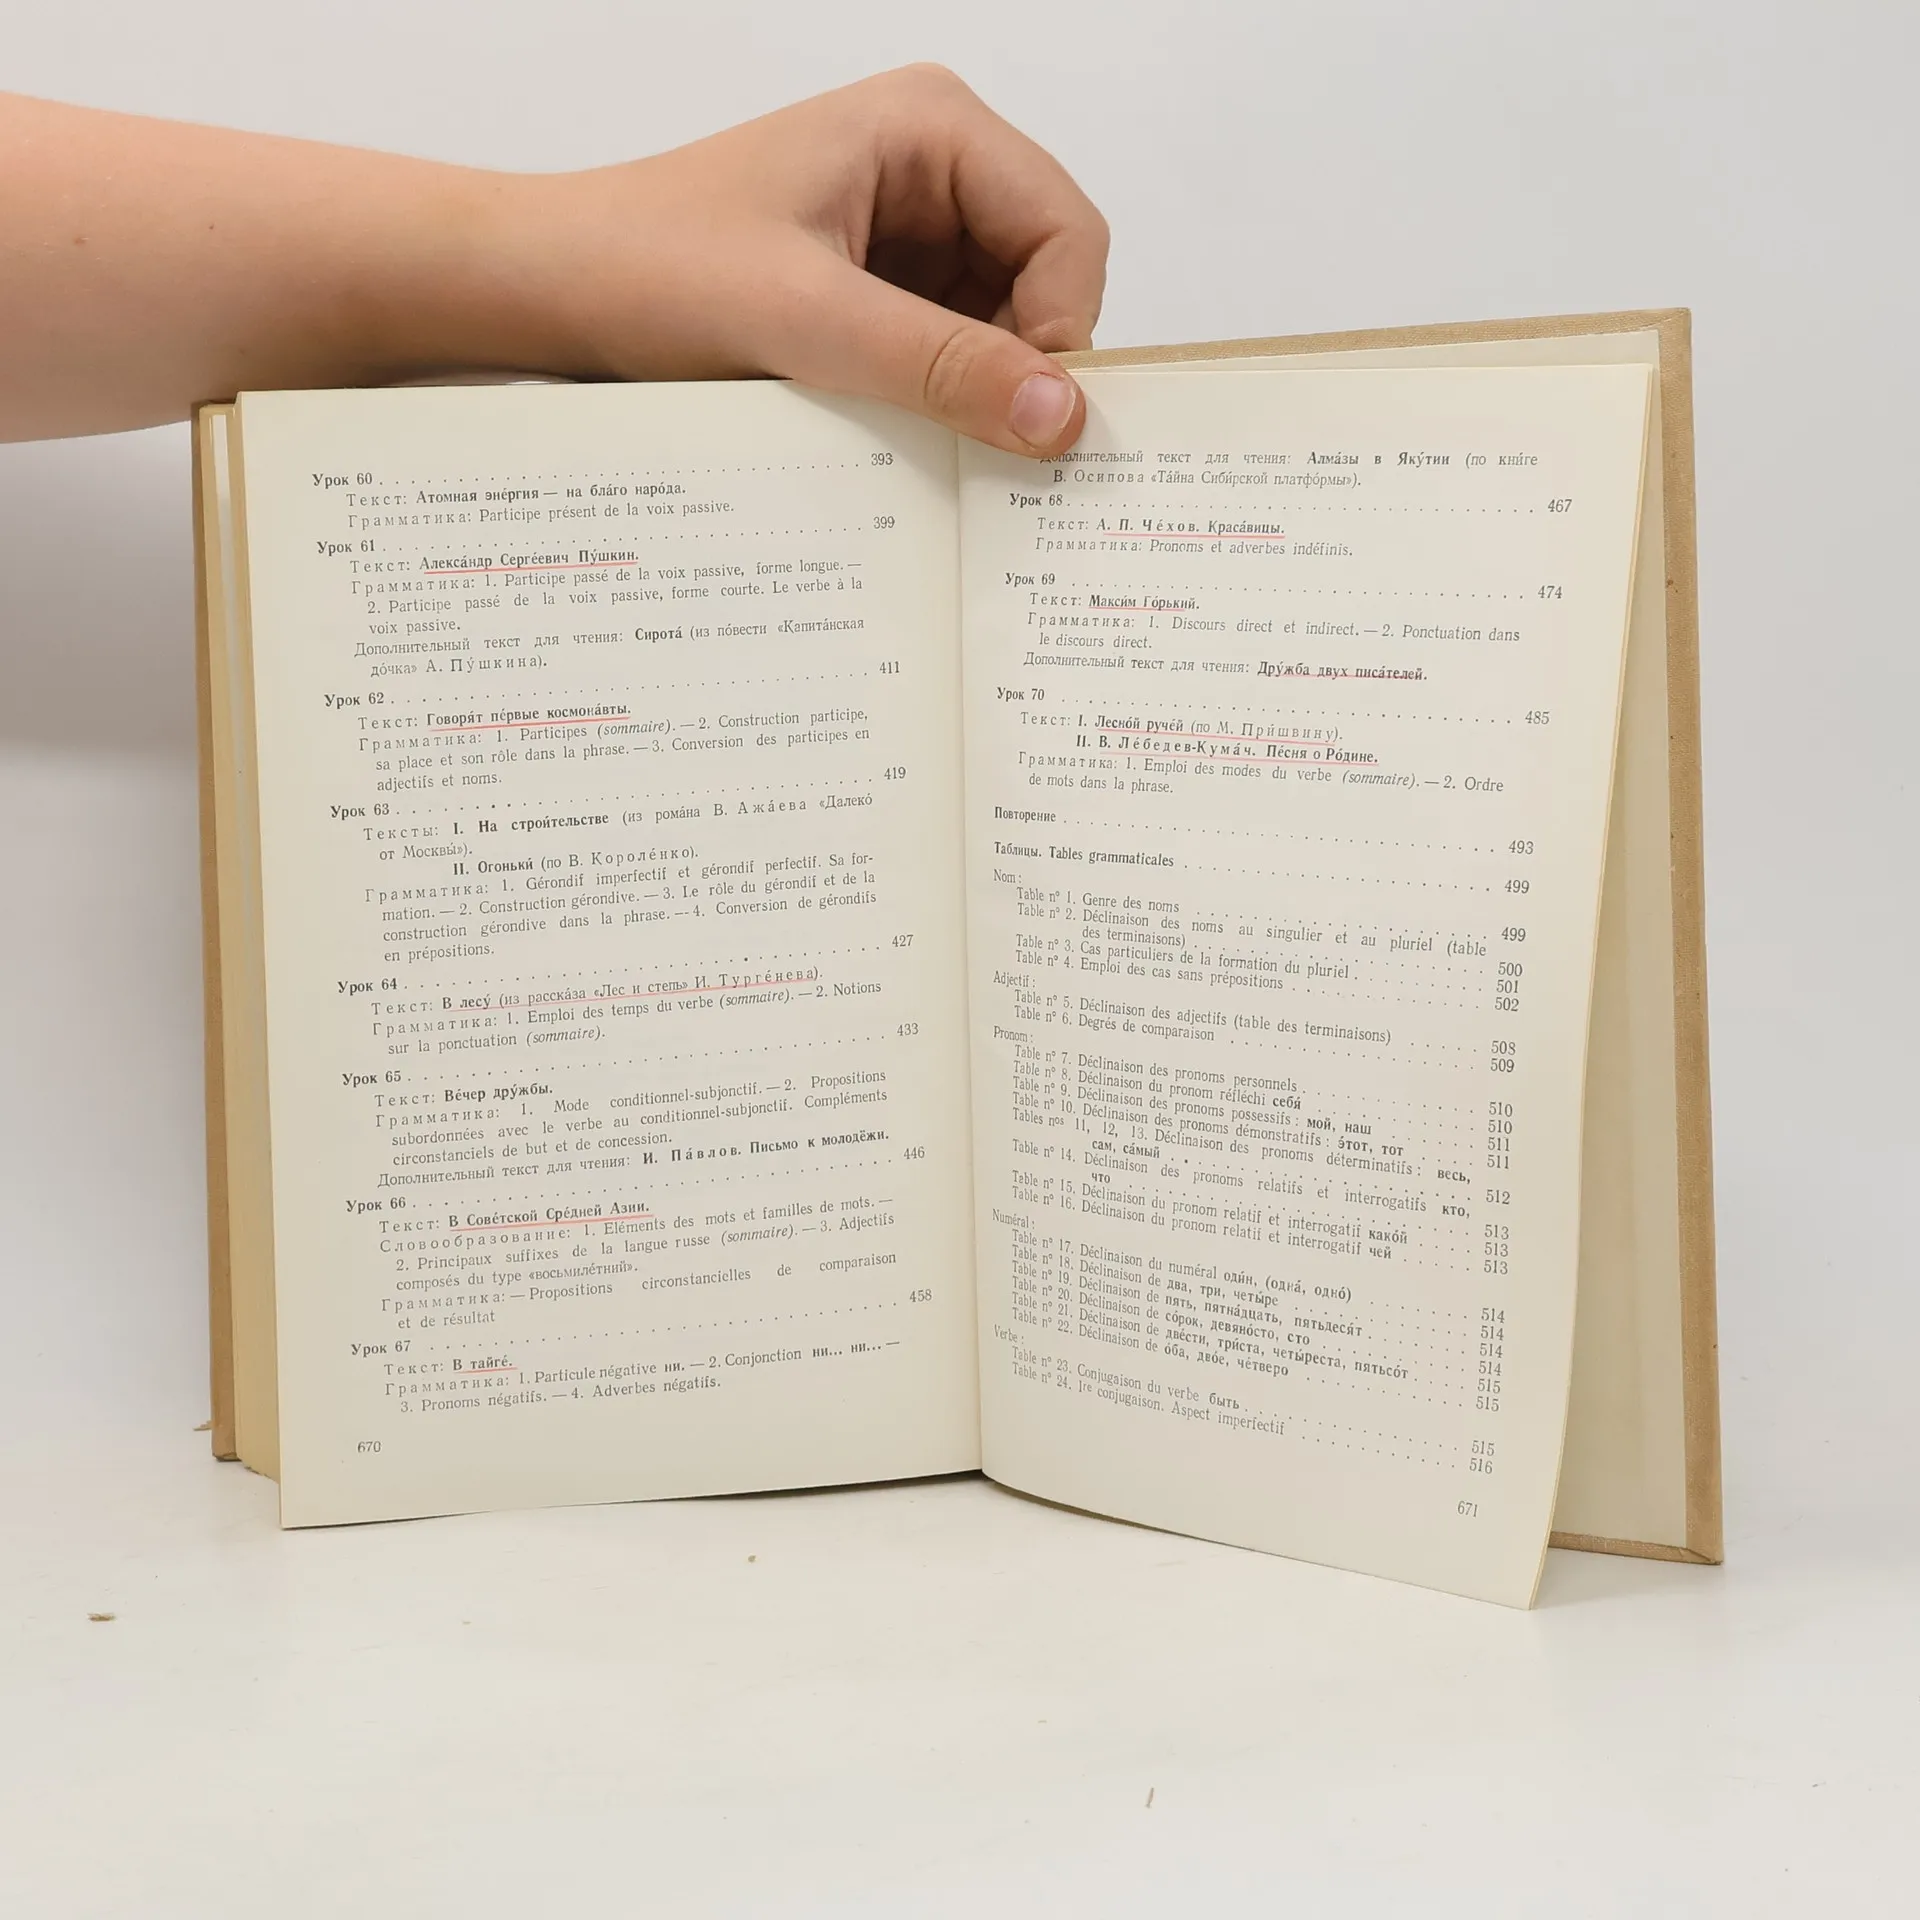 Урок 60 . . . . . . . . . . . . . . . . . . . . . . . . 393
Текст: Атомная эне́ргия — на бла́го наро́да.
Грамматика: Participe présent de la voix passive.
Урок 61 . . . . . . . . . . . . . . . . . . . . . . . . 399
Текст: Алекса́ндр Серге́евич Пу́шкин.
Грамматика: 1. Participe passé de la voix passive, forme longue. —
2. Participe passé de la voix passive, forme courte. Le verbe à la
voix passive.
Дополнительный текст для чтения: Сирота́ (из по́вести «Капита́нская
до́чка» А. Пу́шкина).
Урок 62 . . . . . . . . . . . . . . . . . . . . . . . . 411
Текст: Говоря́т пе́рвые космона́вты.
Грамматика: 1. Participes (sommaire). — 2. Construction participe,
sa place et son rôle dans la phrase. — 3. Conversion des participes en
adjectifs et noms.
Урок 63 . . . . . . . . . . . . . . . . . . . . . . . . 419
Тексты: I. На строи́тельстве (из рома́на В. Ажа́ева «Далеко́
от Москвы́»).
II. Огоньки́ (по В. Короле́нко).
Грамматика: 1. Gérondif imperfectif et gérondif perfectif. Sa for-
mation. — 2. Construction gérondive. — 3. Le rôle du gérondif et de la
construction gérondive dans la phrase. — 4. Conversion de gérondifs
en prépositions.
Урок 64 . . . . . . . . . . . . . . . . . . . . . . . . 427
Текст: В лесу́ (из расска́за «Лес и степь» И. Турге́нева).
Грамматика: 1. Emploi des temps du verbe (sommaire). — 2. Notions
sur la ponctuation (sommaire).
Урок 65 . . . . . . . . . . . . . . . . . . . . . . . . 433
Текст: Ве́чер дру́жбы.
Грамматика: 1. Mode conditionnel-subjonctif. — 2. Propositions
subordonnées avec le verbe au conditionnel-subjonctif. Compléments
circonstanciels de but et de concession.
Дополнительный текст для чтения: И. Па́влов. Письмо к молодёжи.
Урок 66 . . . . . . . . . . . . . . . . . . . . . . . . 446
Текст: В Сове́тской Сре́дней Азии.
Словообразование: 1. Eléments des mots et familles de mots. —
2. Principaux suffixes de la langue russe (sommaire). — 3. Adjectifs
composés du type «восьмиле́тний».
Грамматика: — Propositions circonstancielles de comparaison
et de résultat
Урок 67 . . . . . . . . . . . . . . . . . . . . . . . . 458
Текст: В тайге́.
Грамматика: 1. Particule négative ни. — 2. Conjonction ни... ни... —
3. Pronoms négatifs. — 4. Adverbes négatifs.
670
Дополнительный текст для чтения: Алма́зы в Яку́тии (по кни́ге
В. Осипова «Та́йна Сиби́рской платфо́рмы»).
Урок 68 . . . . . . . . . . . . . . . . . . . . . . . . 467
Текст: А. П. Че́хов. Краса́вицы.
Грамматика: Pronoms et adverbes indéfinis.
Урок 69 . . . . . . . . . . . . . . . . . . . . . . . . 474
Текст: Макси́м Го́рький.
Грамматика: 1. Discours direct et indirect. — 2. Ponctuation dans
le discours direct.
Дополнительный текст для чтения: Дру́жба двух писа́телей.
Урок 70 . . . . . . . . . . . . . . . . . . . . . . . . 485
Текст: I. Лесно́й руче́й (по М. При́швину).
II. В. Ле́бедев-Кума́ч. Пе́сня о Ро́дине.
Грамматика: 1. Emploi des modes du verbe (sommaire). — 2. Ordre
de mots dans la phrase.
Повторение . . . . . . . . . . . . . . . . . . . . . . . . 493
Таблицы. Tables grammaticales . . . . . . . . . . . . . . . . 499
Nom :
Table n° 1. Genre des noms . . . . . . . . . . . . . . . . 499
Table n° 2. Déclinaison des noms au singulier et au pluriel (table
des terminaisons) . . . . . . . . . . . . . . . . 500
Table n° 3. Cas particuliers de la formation du pluriel . . . . . . . . 501
Table n° 4. Emploi des cas sans prépositions . . . . . . . . . . . . 502
Adjectif :
Table n° 5. Déclinaison des adjectifs (table des terminaisons) . . . . . 508
Table n° 6. Degrés de comparaison . . . . . . . . . . . . . . 509
Pronom :
Table n° 7. Déclinaison des pronoms personnels . . . . . . . . . . 510
Table n° 8. Déclinaison du pronom réfléchi себя́ . . . . . . . . . . 510
Table n° 9. Déclinaison des pronoms possessifs : мой, наш . . . . . . 511
Table n° 10. Déclinaison des pronoms démonstratifs : э́тот, тот . . . . 511
Tables nos 11, 12, 13. Déclinaison des pronoms déterminatifs : весь,
сам, са́мый . . . . . . . . . . . . . . . . 512
Table n° 14. Déclinaison des pronoms relatifs et interrogatifs кто,
что . . . . . . . . . . . . . . . . 513
Table n° 15. Déclinaison du pronom relatif et interrogatif како́й . . . . 513
Table n° 16. Déclinaison du pronom relatif et interrogatif чей . . . . . 513
Numéral :
Table n° 17. Déclinaison du numéral оди́н, (одна́, одно́) . . . . . . 514
Table n° 18. Déclinaison de два, три, четы́ре . . . . . . . . . . 514
Table n° 19. Déclinaison de пять, пятна́дцать, пятьдеся́т . . . . . . 514
Table n° 20. Déclinaison de со́рок, девяно́сто, сто . . . . . . . . 514
Table n° 21. Déclinaison de две́сти, три́ста, четы́реста, пятьсо́т . . . . 515
Table n° 22. Déclinaison de о́ба, дво́е, че́тверо . . . . . . . . . . 515
Verbe :
Table n° 23. Conjugaison du verbe быть . . . . . . . . . . . . 515
Table n° 24. Ire conjugaison. Aspect imperfectif . . . . . . . . . . 516
671